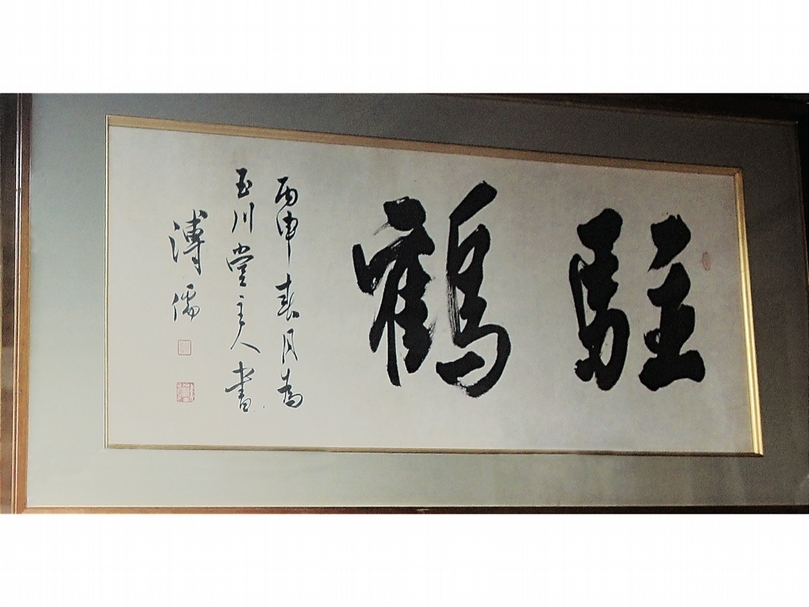 駐鶴
丙申春月為
玉川堂主人書
溥儒